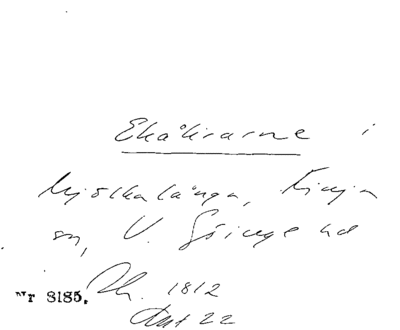 Ekåkrarne i
Mjölkalånga, Finja
sn, V. Göinge hd
Nr 8185. Th. 1812
Ant 22